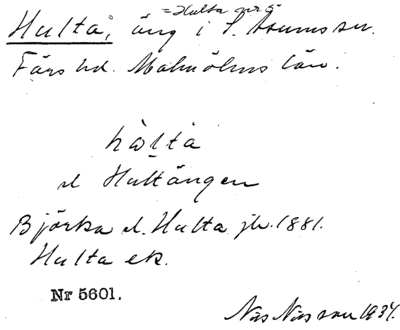 = Hulta
Hulta, äng i S. Åsums sn.
Färs hd. Malmöhus län.
hùlta
el Hultängen
Björka el. Hulta jb. 1881.
Hulta ek.
Nr 5601.
Nils Nilsson 1934.